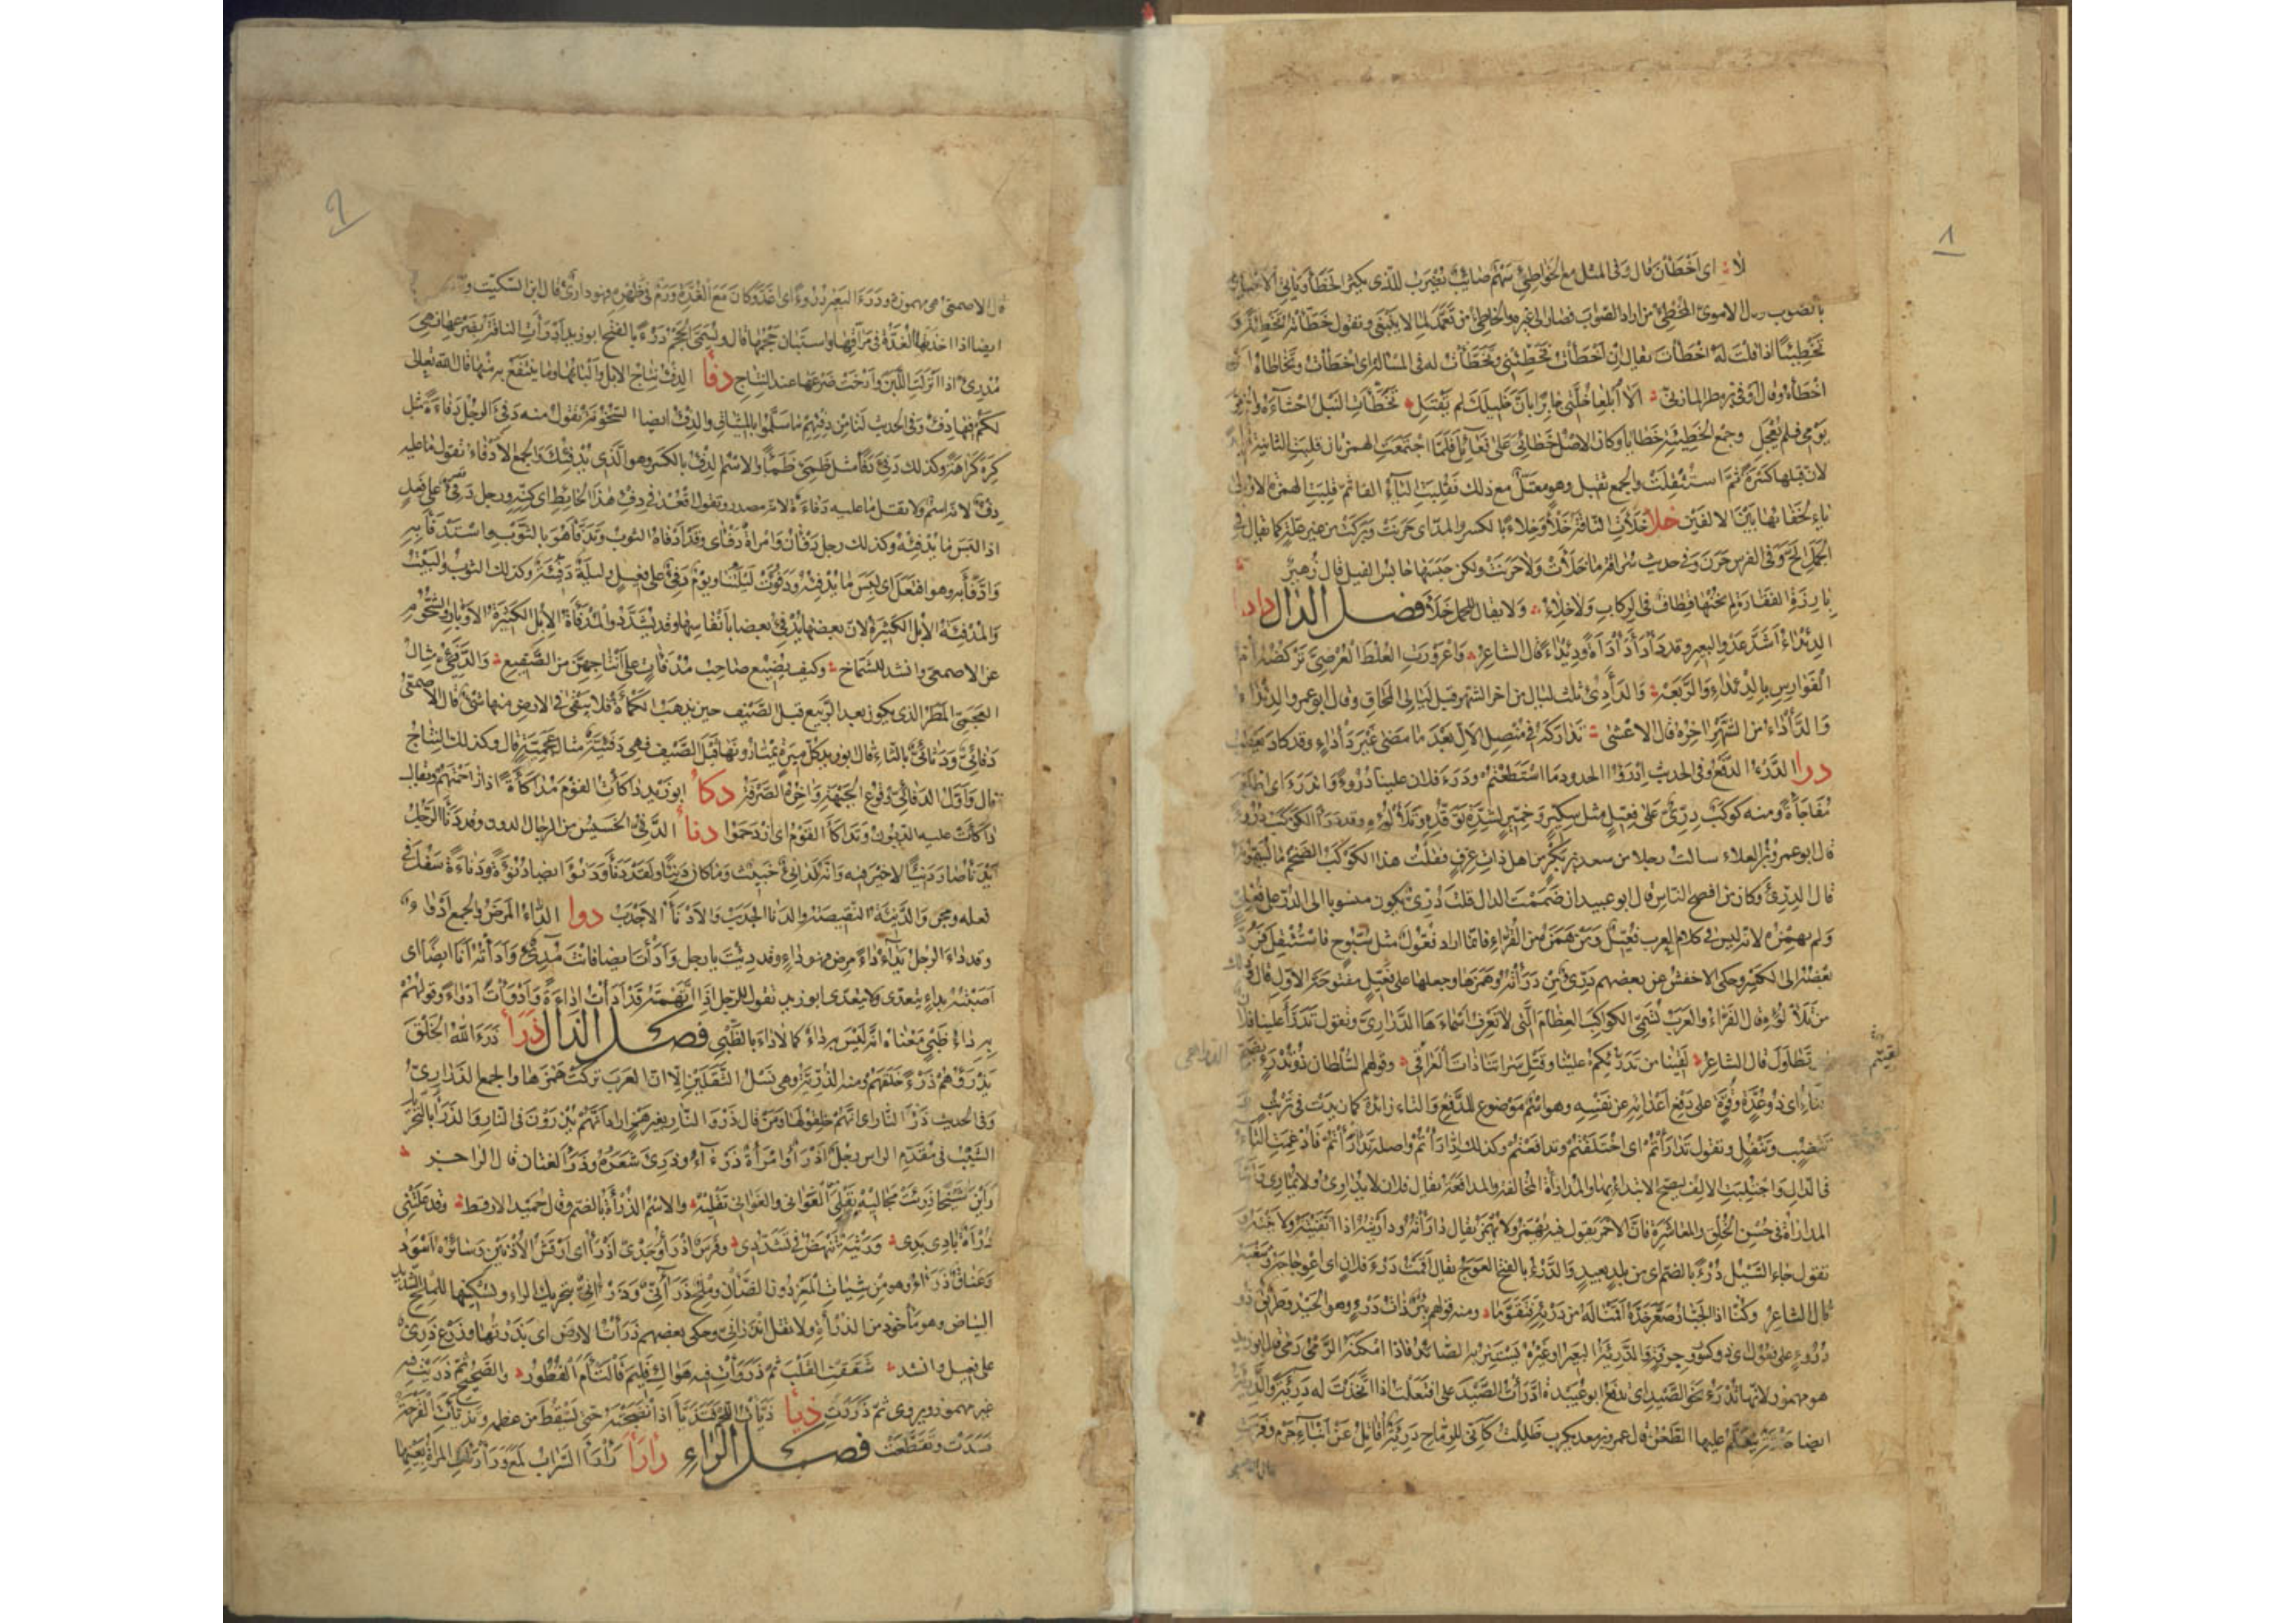 ١
لا؞ اى اَخْطَأنَ قال وَفى المثل مع الخَواطِئِ سَهْم صَائِبٌ يُضرَب للذى يكثر الخَطَأ وَيَأتى الاحيان
بالصّوب الاموىّ المُخْطِئُ من اراد الصّوابَ فصار الى غيره والخاطِئُ من تَعَمَّدَ لِمَا لا يَنْبَغى وتقول خَطَّأتُهُ تَخْطِئَةً وَ
تَخْطِيئًا اذا قلتَ لَهُ اخْطَأتَ يقال اِنْ اَخْطَأتُ فَخَطِّئْنى وتَخَطَّأتُ له فى المسألة اى اخطأتُ وتَخَاطَأهُ اى
اخْطَأهُ وقال اَوفى بن مطر المازنىّ؞ اَلا اَبْلِغَا خُلَّتى جَابِرًا بِاَنَّ خَلِيلَكَ لم يُقْتَلِ؞ تَخَطَّأَتِ النَبلُ احْشَآءَهُ وَاُخِّرَ
يَوْمى فلم يَعْجَلِ وجمع الخَطِيئةِ خَطَايَا وكان الاصْل خَطَائِئُ عَلى فَعَائِلَ فَلَمَّا اجْتَمَعَتِ الهمزتان قلِبَتِ الثانية ياءً
لانّ قبلها كَسْرَةً ثُمَّ استُثْقِلَتْ والجمع ثقيل وهو معتَلّ مع ذلك فَقُلِبَتِ اليَآءُ الفا ثمّ قلِبَتِ الهمزة الاولى
ياء لخَفَائها بَيْنَ الالفَيْن خلأ خَلَأتِ النّاقة خَلْأً وخِلاءً بالكسر والمدّ اى حَرَنَتْ وبَرَكَتْ من غير علّة كما يقال فى
الجَمَل اَلَحَّ وَفى الفرس حَرَنَ وَفى حديث سُرَاقَةَ مَا خَلَأَتْ وَلا حَرَنَتْ ولكن حَبَسَهَا حَابِسُ الفيل قال زُهير
بِآرِزَةِ الفَقَارَةِ لم يَخُنْهَا قِطَافٌ فى الرّكابِ وَلا خِلاءُ؞ وَلا يقال للجمل خَلَأَ فصل الدال دادا
الدِئْدَاءُ اَشَدُّ عَدْوِ البعير وقد دَأدَأَ دَأدَأَةً ودِئْدَاءً قال الشاعر؞ وَاعْرَوْرَتِ العُلُطَ العُرْضِىَّ تَرْكُضُهُ اُمُّ
الفَوَارِسِ بِالدِئْدَاءِ وَالرَّبَعَةِ؞ وَالدَآدِئُ ثَلث ليال من اخر الشهر قبل ليالى المحَاق وقال ابو عمرو الدِئْدَاءُ
وَالدَّأدَاءُ مِن الشَّهْرِ اخِرُهُ قال الاعشى؞ تَدَارَكَهُ فى مُنْصِلِ الاَلِّ بَعْدَ مَا مَضى غَيْرَ دَأدَاءٍ وقد كاد يعطب
درا الدَّرْءُ الدَّفعُ وَفى الحديث اِدْرَؤُا الحدودَ مَا اسْتَطَعْتُمْ ودَرَءَ فلان علينا دُرُوءً وَاندَرَءَ اى اطلع
مُفَاجَأةً ومنه كوكب دِرِّىْءٌ عَلى فِعِّيلٍ مثل سِكِّيرٍ وَخِمِّيرٍ لشِدَّةِ تَوَقُّدِهِ وتَلَأْلُئِهِ وقد دَرَأَ الكَوكَبُ دُرُوءً
قال ابو عمرو بن العلاء سالت رجلا من سعد بن بكر من اهل ذاتِ عِرْقٍ فقلت هذا الكَوكَبُ الضَّخم مَا تُسَمُّونَهُ
قال الدِرِّىءُ وكان من افصح النّاسِ قال ابو عبيد ان ضَمَمْتَ الدال قلت دُرِّىٌّ يكون منسوبا الى الدُرّ على فُعْلِىّ
وَلم تهمِزْه لانّه ليس فى كلام العرب فُعِّيل وَمَن هَمَزَهُ من القُرّاءِ فانّما اراد فُعُّولٌ مثل سُبُّوح فاستُثْقِلَ فَرُدَّ
بَعْضُهُ الى الكسر وحكى الاخفش عن بعضهم دَرِّىءٌ مِنْ دَرَأتُهُ وَهَمَزَهَا وجعلها على فَعِّيل مفتوحةَ الاوّلِ قال
مِن تَلَأْلُؤِهِ قال الفَرّاءُ والعَرَبُ تُسَمِّى الكواكِبَ العِظَامَ الّتى لا تَعْرِفُ اَسْمَاءَهَا الدَّرَارِىَّ وتقول تَدَرَّأَ علينا فلان
تَطَاوَلَ قال الشاعر؞ لَقِينَا مِن تَدَرُّئِكُمْ علينا وقَتْلِ سَرَاتِنَا ذَاتَ العَرَاقى؞ وقولهم السُلطان ذُو تُدْرَءٍ بضم
التاء اى ذو عُدَّةٍ وقُوَّةٍ على دَفعِ اَعْدَائِهِ عن نَفْسِهِ وهو اسم مَوضوع للدَّفعِ وَالتاء زائدة كما زيدت فى تَرْتُبٍ
تَنْضُبٍ وتَتْفُلٍ وتقول تَدَارَأتُمْ اى اختَلَفْتُمْ وتدافَعْتُمْ وكذلك ادّارَأتُمْ واصله تَدَارَأتُمْ فَاُدْغِمَتِ التّآءُ
فى الدال وَاجتُلِبَتِ الالِفُ ليصحّ الابتداءُ بها والمُدَارَأَةُ المخالفة والمدافعة يقال فلان لا يُدَارِئُ ولا يُمَارِى
المدارَاةُ فى حُسْنِ الخُلُقِ والمعَاشَرَةِ فانّ الاحمر يقول فيه يُهْمَزُ ولا يُهْمَزُ يقال دارَأتُهُ ودارَيْتُهُ اذا اتَّقَيْتَهُ ولايَنْتَهُ و
تقول جاء السَّيْلُ دُرْءً بالضمّ اى من بلد بعيدٍ وَالدَّرْءُ بالفتح العَوَجُ يقال اَقَمْتُ دَرْءَ فلانٍ اى اعوجاجَهُ
قال الشاعر وكُنّا اذا الجَبّارُ صَعَّرَ خَدَّهُ اَقَمْنَا لَهُ من دَرْئِهِ فَتَقَوَّمَا؞ ومنه قولهم بِئْرٌ ذَاتُ دَرْءٍ وهو الحَيْدُ وطَرِيقٌ ذو
دُرُوءٍ على فُعُولٍ اى ذو كُسُورٍ وجِرَفَةٍ والدَّرِيئَةُ البعير او غيره يَسْتَتِرُ به الصَائدُ فاذا امْكَنَهُ الرَّمْىُ رَمَى قال ابو زيد
هو مهموز لانّها تُدْرَءُ نحوَ الصَّيْدِ اى تدفعُ ابو عُبَيدة ادَّرَأتُ الصَّيْدَ على افتَعَلْتُ اذا اتَّخَذْتَ لَهُ دَرِيئَةً والدَّرِيئَةُ
ايضا حَلْقَةٌ يُتَعَلَّمُ عليها الطَّعْنُ قال عمرو بن معد يكرب ظَلِلْتُ كَاَنّى للرِّماح دَرِيئَةٌ اُقَاتِلُ عَنْ اَبْنَاءِ جَرْمٍ وفَرَّتِ
٢
قال الاصمعىّ هى مهموزة ودَرَءَ البَعيرُ دُرُوءً اى اَغَدَّ وكان مَعَ الغُدَّةِ وَرَمٌ فى ظَهرِهِ فهو دارِئٌ قال ابن السّكّيت و
ايضا اذا اخَذَتْهَا الغُدَّةُ فى مَرَاقِّهَا واستَبَان حَجمُهَا قال ويُسَمَّى الحَجْم دَرْءً بالفتح ابو زيد اَدْرَأتِ الناقة بِضَرْعِهَا فهى
مُدْرِئٌ اذا انْزَلَتِ اللَّبَنَ وَاَرْخَتْ ضَرْعَهَا عند النِتَاج دفأ الدِفْءُ نِتَاج الابل وَاَلْبَانُهَا وما يُنْتَفَعُ به مِنْها قال الله تعالى
لَكُمْ فيها دِفْءٌ وَفى الحديث لنا مِن دِفْئِهِمْ ما سَلَّمُوا بالميثاقِ والدِفْءُ ايضا السُّخُونَة تقول منه دَفِئَ الرجُلُ دَفَاءَةً مثل
كَرِهَ كَرَاهَةً وكذلك دَفِئَ دَفَأً مثل ظَمِئَ ظَمَأً والاسْم الدِّفْءُ بالكسر وهو الّذى يُدْفِئُكَ والجمع الاَدْفَاءُ تقول مَا عليه
دِفْءٌ لانّه اسْمٌ ولا يقل مَا عليه دَفَاءَةٌ لانّه مصدر وتقول اقْعُدْ فى دِفْءِ هٰذَا الحَائِطِ اى كِنِّهِ ورجل دَفِئٌ على فَعِلٍ
اذا لَبِسَ مَا يُدْفِئُهُ وكذلك رجل دَفْآنُ وَامْرَأةٌ دَفْأى وقَدْ اَدْفَاهُ الثوبُ وتَدَفَّأَ هُوَ بالثَّوْبِ وَاسْتَدْفَأَ بِهِ
وَادَّفَأَ بِهِ وهو افتَعَلَ اى لَبِسَ مَا يُدْفِئُهُ ودَفُؤَتْ لَيْلَتُنَا ويَوْمٌ دَفِئٌ على فعيلٍ وليلةٌ دَفِئَةٌ وكذلك الثوبُ والبَيْتُ
وَالمُدْفِئَةُ الاِبِلُ الكَثِيرَةُ لانّ بعضها يُدْفِئُ بعضا باَنْفَاسِهَا وقد يُشَدَّدُ والمُدْفَأَةُ الاِبِلُ الكَثِيرَةُ الاَوْبَارِ والشُّحُومِ
عن الاصمعىّ وانشد للشّمّاخ؞ وكيف يَضِيعُ صاحِبُ مُدْفَآتٍ عَلى اَثْبَاجِهِنَّ مِنَ الصَّقِيعِ؞ وَالدَّفَئِىُّ مثال
العَجَمِىِّ المَطَرُ الذى يكون بعد الرَّبيع قبل الصَّيْفِ حين يذهَبُ الكَمْأَةُ فلا يبقى فى الارضِ منها شئٌ قال الاصمعىّ
دَفَئِىٌّ وَدَثَئِىٌّ بالثاءِ قال ابو زيد كلّ مِيرَةٍ يَمْتَارُونَهَا قَبْلَ الصَّيْفِ فهى دَفَئِيَّةٌ مثال عَجَمِيَّةٍ قال وكذلك النِتَاج
قال وَاَوّلُ الدَفَائِىّ وُقُوعُ الجَبْهَةِ وَاخِرُهُ الصَّرْفَةُ دكأ ابو زيد دَاكَأتُ القَوْمَ مُدَاكَأَةً اذا زَاحَمْتَهُمْ ويقال
دَاكَأَتْ عليه الدُيُونُ وتَدَاكَأَ القَوْمُ اى ازْدَحَمُوا دنأ الدَّنِئُ الخَسِيسُ من الرجال الدون وقد دَنَأَ الرَّجُل
يَدْنَأُ صار دَنِيئًا لا خَيْرَ فيه وَانّه لَدَانِئٌ خَبِيث ومَا كان دَنِيئًا ولَقَدْ دَنَأَ ودَنُؤَ ايضا دُنُوءَةً ودَنَاءَةً سَفُلَ فى
فعله ومجن وَالدَّنِيئَةُ النَّقِيصَةُ والدَنَأُ الحَدَبُ والاَدْنَأُ الاَحْدَبُ دوا الدّاءُ المَرَضُ والجمع اَدْوَاءٌ
وقد داءَ الرجُلُ يَدَاءُ دَاءً مَرِضَ فهو دَاءٍ وقد دِئْتَ يا رجل وَاَدَأتَ ايضا فانْتَ مُدِئٌ وَاَدَأتُهُ اَنَا ايضًا اى
اَصَبْتُهُ بداءٍ يتعدّى ولا يتعدّى ابو زيد تقول للرّجل اِذَا اتَّهَمْتَهُ قَدْ اَدَأتَ اِدَاءَةً وَاَدْوَأتَ اِدْوَاءً وقولُهُمْ
بهِ دَاءُ ظَبْىٍ مَعْنَاهُ اَنّهُ لَيْسَ بهِ دَاءٌ كما لا دَاءَ بالظَّبْىِ فصل الذال ذرأ ذَرَءَ اللّٰهُ الخَلْقَ
يَذْرَؤُهُمْ ذَرْءً خَلَقَهُمْ ومنه الذُرِّيَّةُ وهى نَسْلُ الثَّقَلَيْنِ اِلّا اَنّ العَرَبَ تَرَكَتْ هَمْزَهَا والجمع الذَرَارِىُّ
وَفى الحديث ذَرْءُ النَّارِ اى انّهُمْ خُلِقُوا لَهَا ومَنْ قال ذَرْوُ النَّار بغير هَمْزٍ اراد انَّهُمْ يُذْرَوْنَ فى النّارِ وَالذَّرَأُ بالتحريك
الشَّيْبُ فى مُقَدَّمِ الراس رَجُلٌ اَذْرَأُ وَامْرَأةٌ ذَرْءَآءُ وذَرِئَ شَعَرُهُ وذَرَأَ لغتان قال الراجز؞
رَاَيْنَ شَيْخًا ذَرِئَتْ مَجَالِيهْ يَقْلِى الغَوَانى والغَوَانى تَقْلِيهْ؞ والاسْمُ الذُرْأَةُ بالضمّ وقال حُمَيد الارقط؞ وقد عَلَتْنى
ذُرْأَةٌ بَادِى بَدِى؞ ورَثْيَةٌ تَنْهَضُ فى تَشَدُّدى؞ وفَرَسٌ اَذْرَأُ وَجَدْىٌ اَذْرَأُ اى اَرْقَشُ الاُذُنَيْنِ وسَائِرُهُ اَسْوَدُ
وعَنَاقٌ ذَرْءَاءُ وهو من شِيَاتِ المَعِزِ دون الضَّأنِ ومِلْحٌ ذَرْآنِىٌّ وذَرَآنِىٌّ بتحريك الراء وتسكينها للمِلْحِ الشديد
البَيَاضِ وهو مَأخوذ من الذُرْأَةِ ولا تقل اَنْذَرَانِىٌّ وحكى بعضهم ذَرَأتُ الارضَ اى بَذَرْتُهَا وزَرْعٌ ذَرِئٌ
على فعيل وانشد؞ شَقَقْتِ القَلْبَ ثُمَّ ذَرَأتِ فيه هَوَاكِ فَلِيمَ فَالْتَأَمَ الفُطُورُ؞ والصَّحِيح ثُمّ ذَرَيْتِ فيه
غير مهموز ويروى ثُمَّ ذَرَرْتِ ذيأ ذَيَّأتُ اللَّحْمَ فَتَذَيَّأَ اذا اَنْضَجْتَهُ حتّى يَسْقُطَ من عظمه وتَذَيَّأَتِ القُرْحَةُ
فَسَدَتْ وتَقَطَّعَتْ فصل الراء رأرأ رَأرَأَ السَّرَابُ لَمَعَ ورَأرَأَتِ المرأَةُ بِعَيْنِهَا